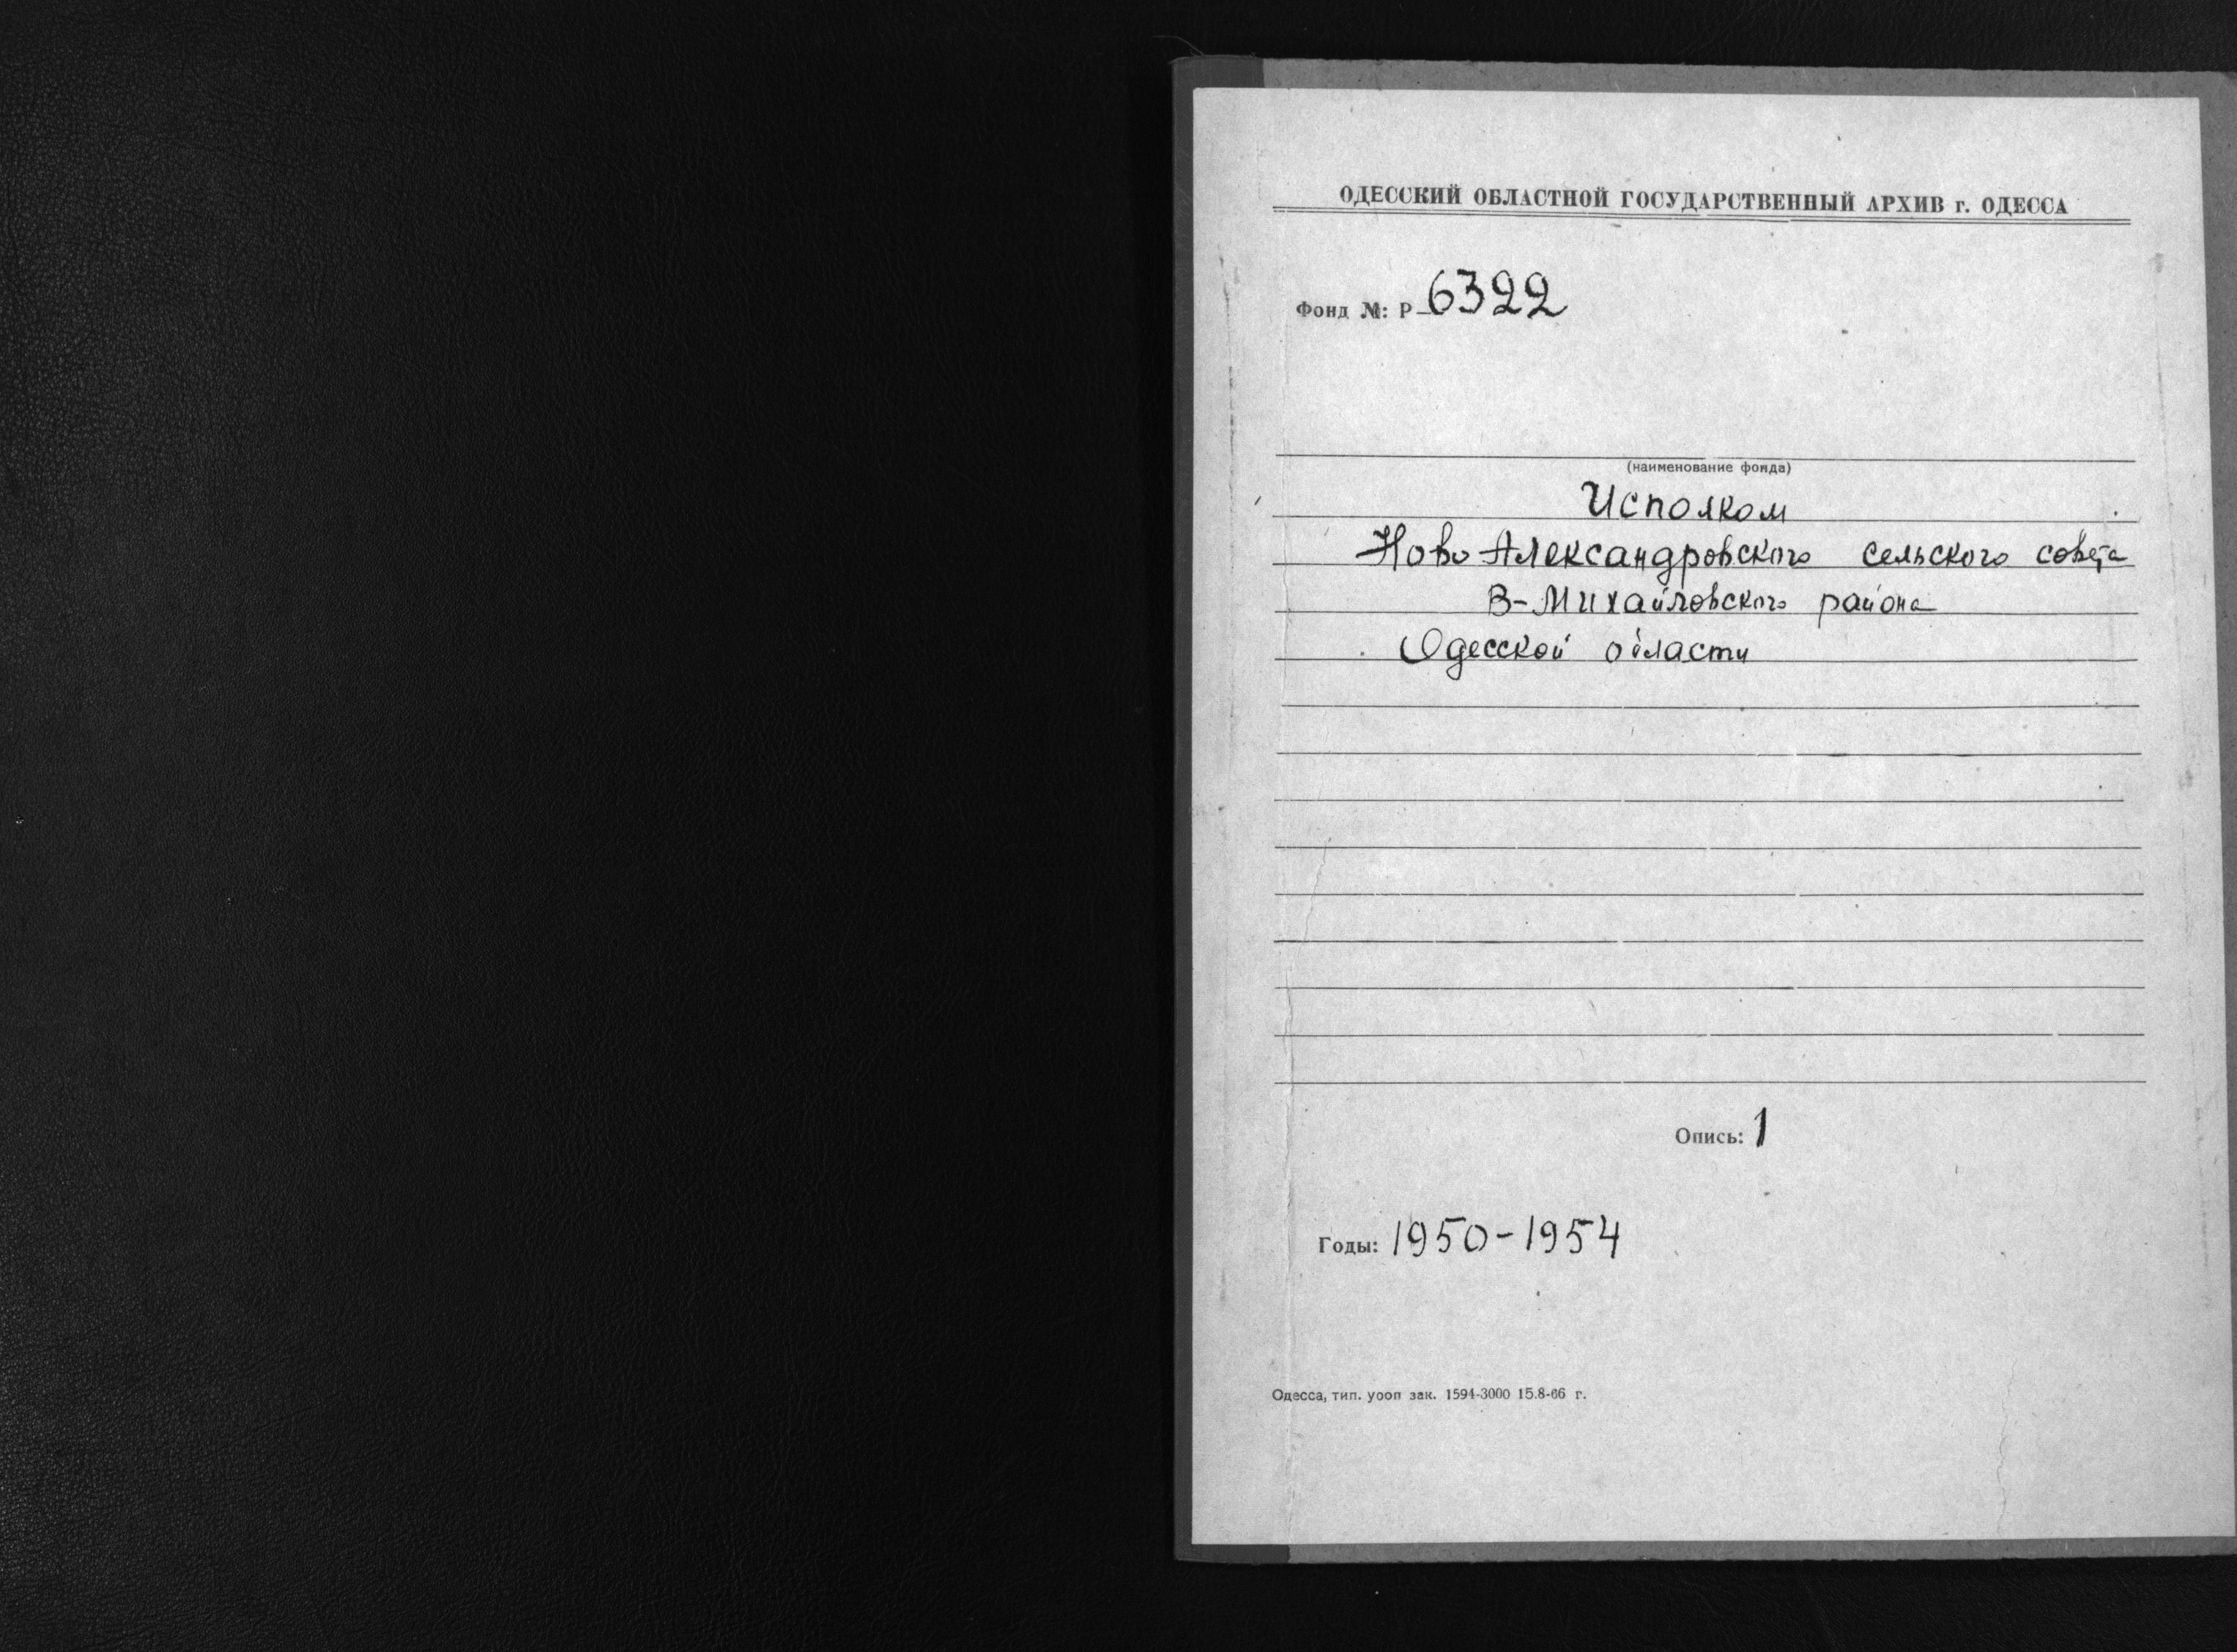 ОДЕССКИЙ ОБЛАСТНОЙ ГОСУДАРСТВЕННЫЙ АРХИВ г. ОДЕССА
Фонд №: Р-6322
(наименование фонда)
Исполком
Ново-Александровского сельского совета
В-Михайловского района
Одесской области
Опись: 1
Годы: 1950-1954
Одесса, тип. уооп зак. 1594-3000 15.8-66 г.